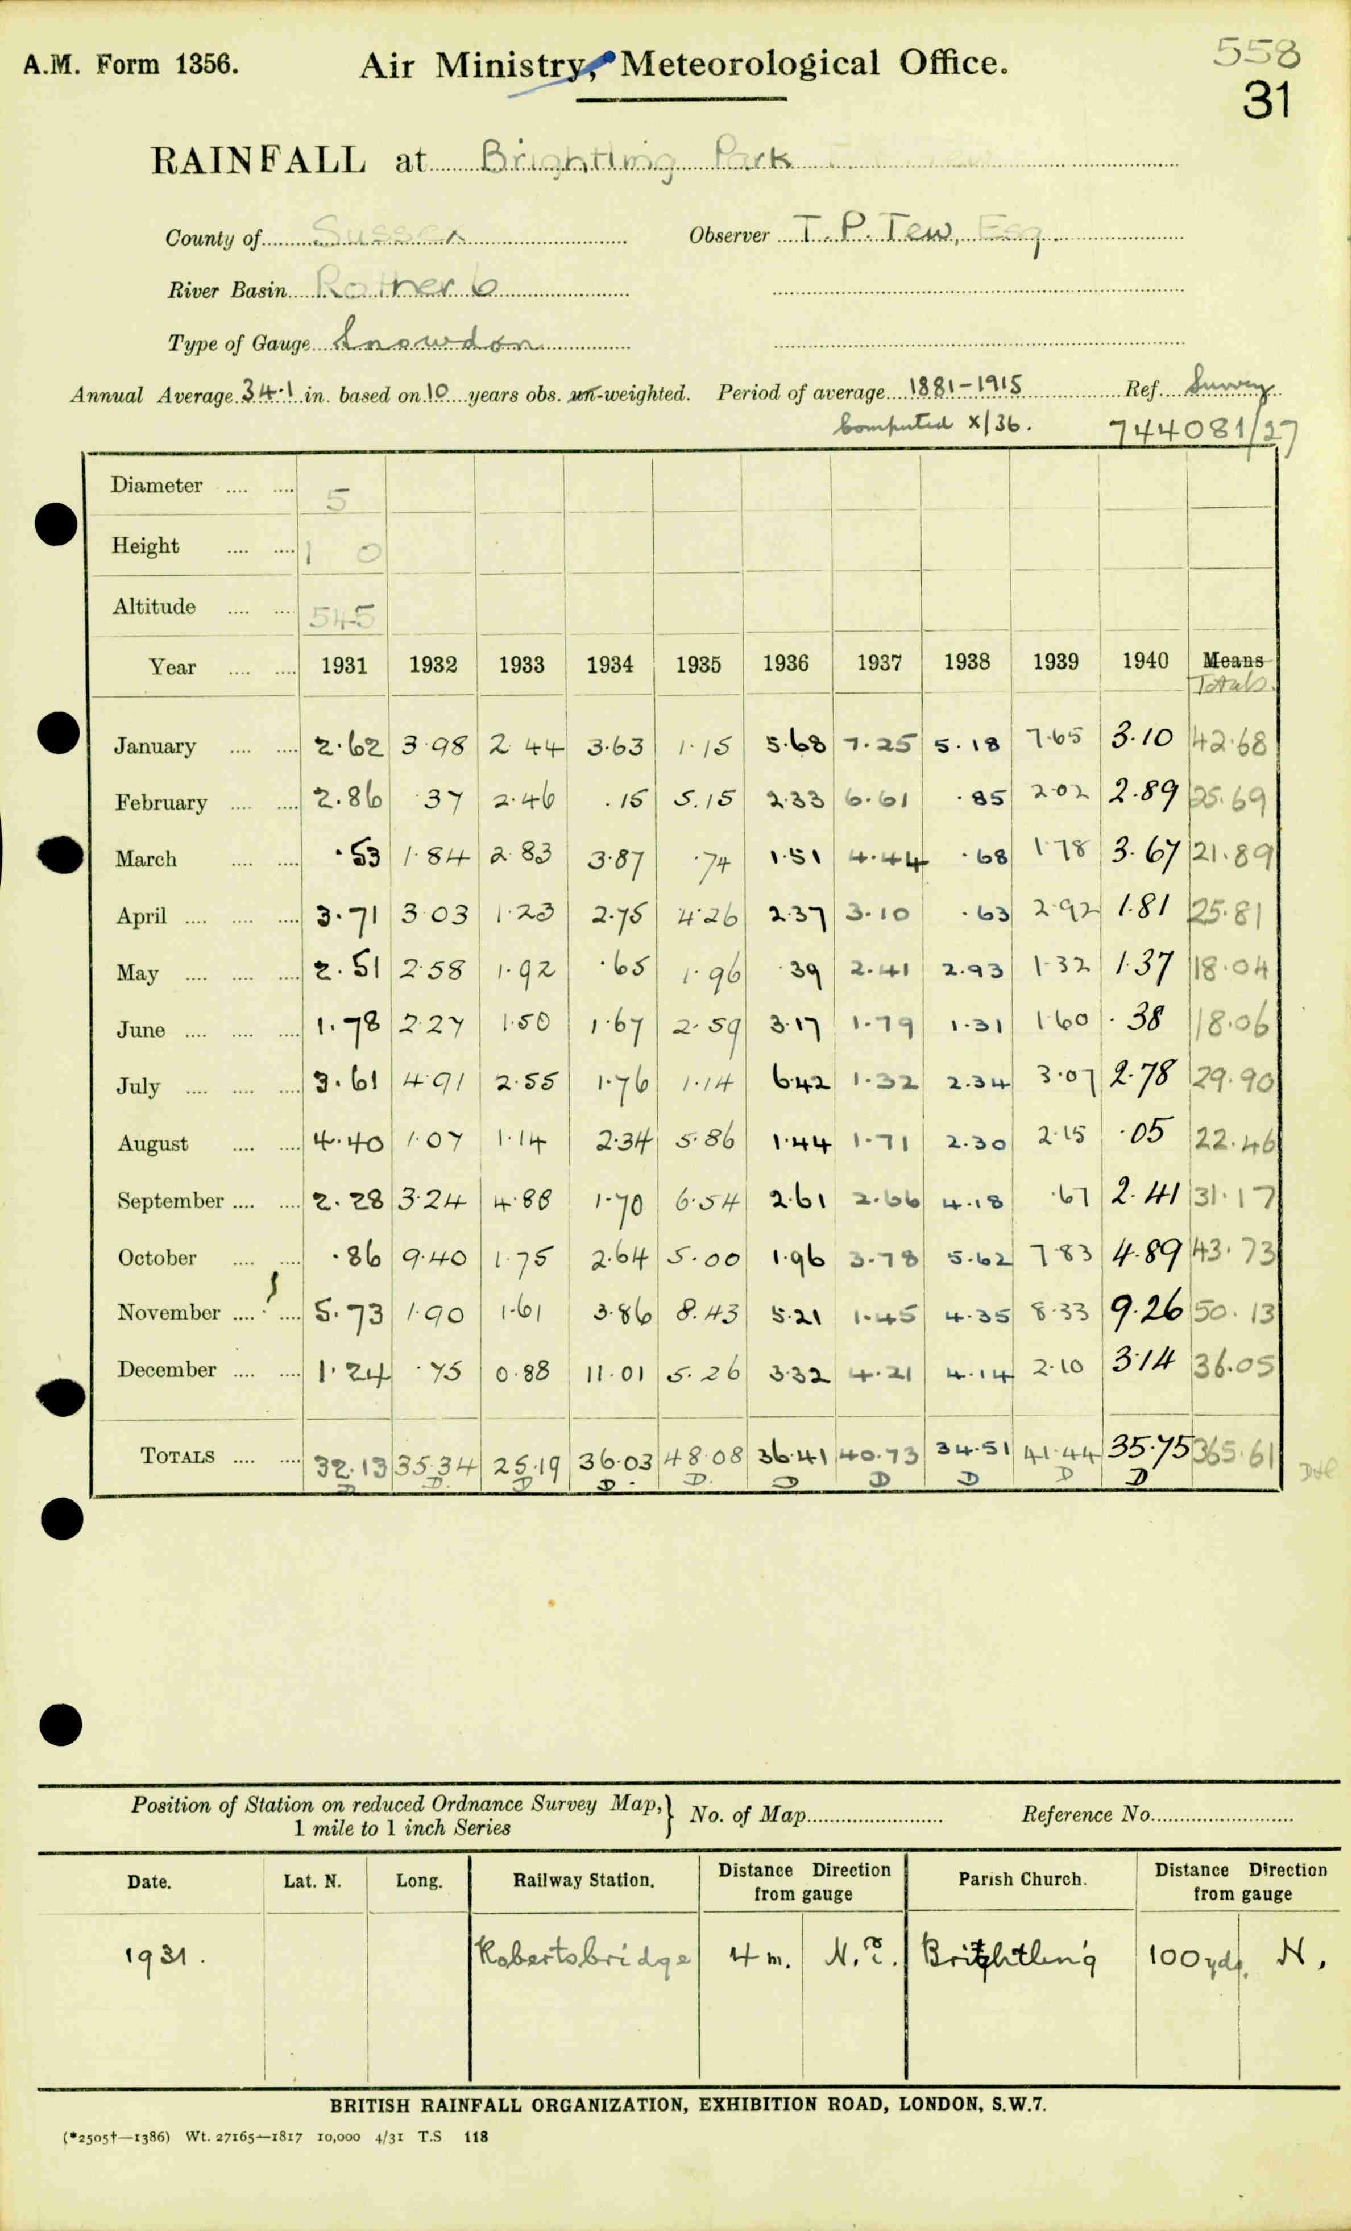 A.M. Form 1356.
Air Ministry, Meteorological Office.
558
31
RAINFALL at Brightling Park
County of Sussex Observer T. P. Tew, Esq
River Basin Rother 6
Type of Gauge Snowdon
Annual Average 34.1 in. based on 10 years obs. un-weighted. Period of average 1881-1915 Ref. Survey
Computed X/36. 744081/27
Diameter 5
Height 1 0
Altitude 545
Year 1931 1932 1933 1934 1935 1936 1937 1938 1939 1940 Means
Totals.
January 2.62 3.98 2.44 3.63 1.15 5.68 7.25 5.18 7.65 3.10 42.68
February 2.86 .37 2.46 .15 5.15 2.33 6.61 .85 2.02 2.89 25.69
March .53 1.84 2.83 3.87 .74 1.51 4.44 .68 1.78 3.67 21.89
April 3.71 3.03 1.23 2.75 4.26 2.37 3.10 .63 2.92 1.81 25.81
May 2.51 2.58 1.92 .65 1.96 .39 2.41 2.93 1.32 1.37 18.04
June 1.78 2.27 1.50 1.67 2.59 3.17 1.79 1.31 1.60 .38 18.06
July 3.61 4.91 2.55 1.76 1.14 6.42 1.32 2.34 3.07 2.78 29.90
August 4.40 1.07 1.14 2.34 5.86 1.44 1.71 2.30 2.15 .05 22.46
September 2.28 3.24 4.88 1.70 6.54 2.61 2.66 4.18 .67 2.41 31.17
October .86 9.40 1.75 2.64 5.00 1.96 3.78 5.62 7.83 4.89 43.73
November 5.73 1.90 1.61 3.86 8.43 5.21 1.45 4.35 8.33 9.26 50.13
December 1.24 .75 0.88 11.01 5.26 3.32 4.21 4.14 2.10 3.14 36.05
TOTALS 32.13 35.34 25.19 36.03 48.08 36.41 40.73 34.51 41.44 35.75 365.61
D D. D D. D. D D D D D
Position of Station on reduced Ordnance Survey Map, } No. of Map Reference No.
1 mile to 1 inch Series
Date. Lat. N. Long. Railway Station. Distance Direction from gauge Parish Church. Distance Direction from gauge
1931. Robertsbridge 4 m. N.E. Brightling 100 yds. N.
BRITISH RAINFALL ORGANIZATION, EXHIBITION ROAD, LONDON, S.W.7.
(*2505†—1386) Wt. 27165—1817 10,000 4/31 T.S 118